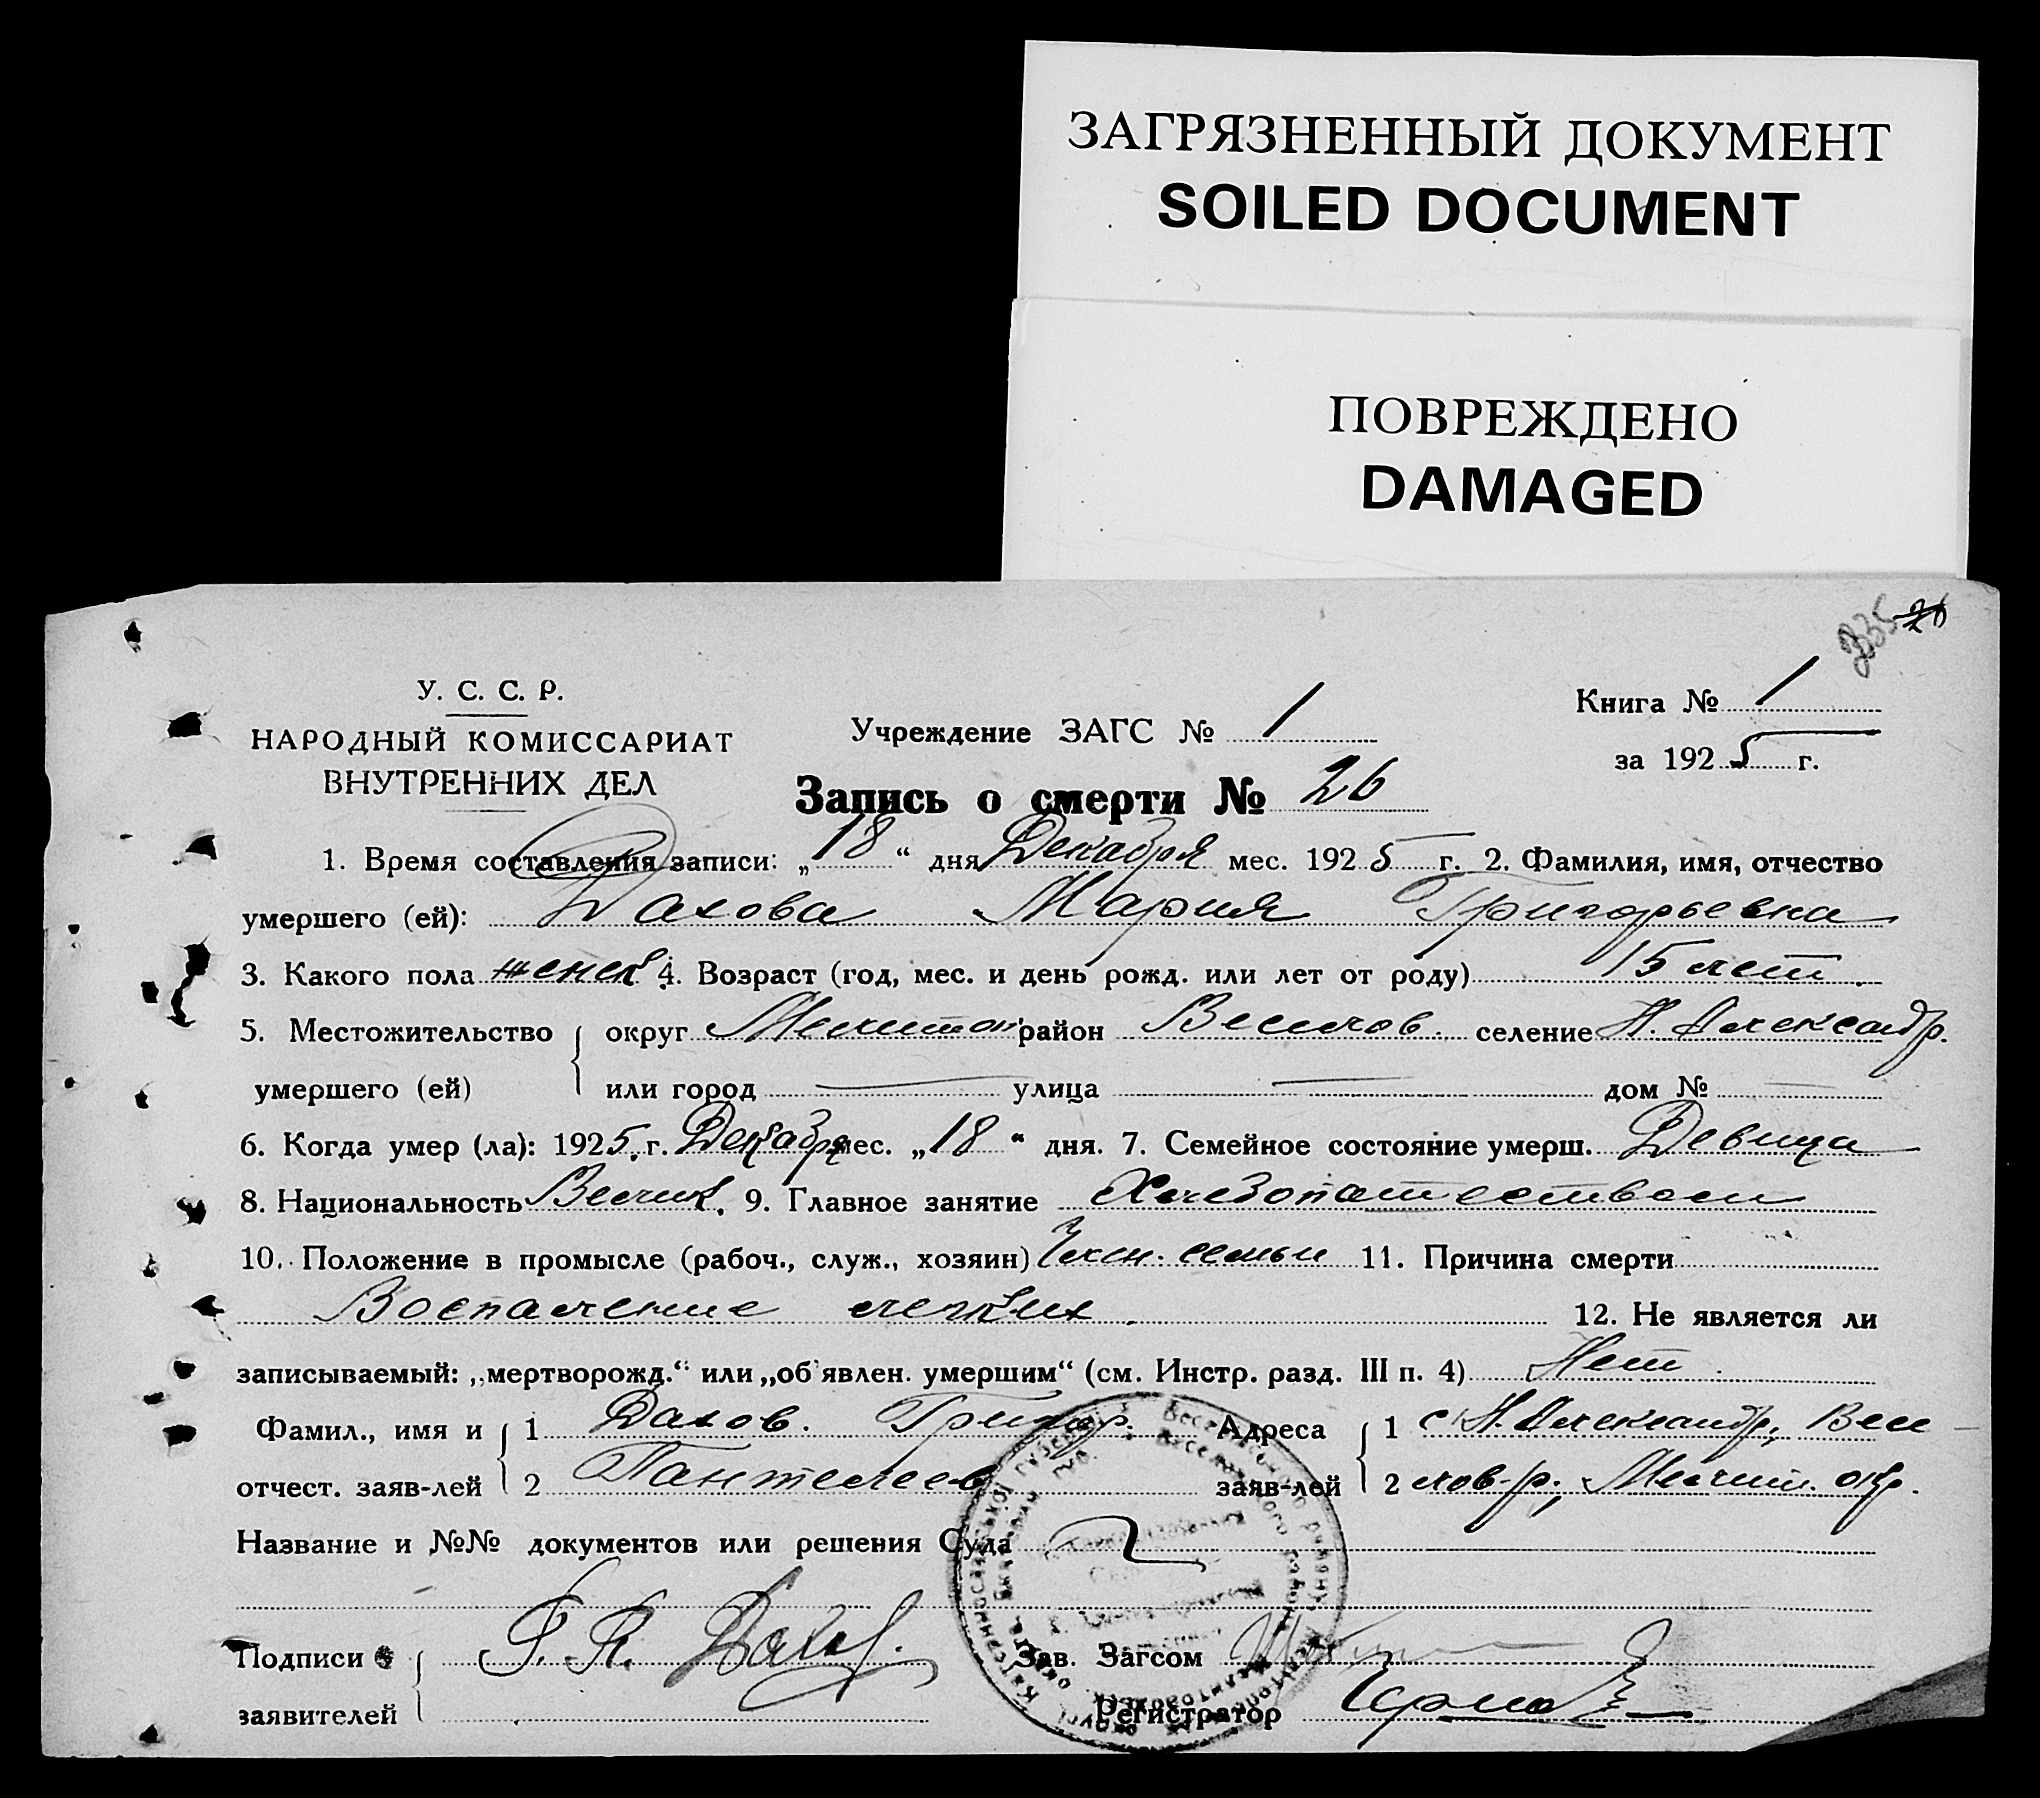 ЗАГРЯЗНЕННЫЙ ДОКУМЕНТ
SOILED DOCUMENT
ПОВРЕЖДЕНО
DAMAGED
335 26
У. С. С. Р.
НАРОДНЫЙ КОМИССАРИАТ
ВНУТРЕННИХ ДЕЛ
Учреждение ЗАГС № 1
Книга № 1
за 1925 г.
Запись о смерти № 26
1. Время составления записи: „18“ дня Декабря мес. 1925 г. 2. Фамилия, имя, отчество
умершего (ей): Дахова Мария Григорьевна
3. Какого пола женск 4. Возраст (год, мес. и день рожд. или лет от роду) 15 лет
5. Местожительство округ Мелитоп район Веселов. селение Н. Александр.
умершего (ей) или город — улица — дом № —
6. Когда умер (ла): 1925 г. Декабря мес. „18“ дня. 7. Семейное состояние умерш. Девица
8. Национальность Велик. 9. Главное занятие Хлебопашеством
10. Положение в промысле (рабоч., служ., хозяин) Член. семьи 11. Причина смерти
Воспаление легких. 12. Не является ли
записываемый: „мертворожд.“ или „об'явлен. умершим“ (см. Инстр. разд. III п. 4) Нет.
Фамил., имя и 1 Дахов. Григор. Адреса 1 с Н. Александр, Весе-
отчест. заяв-лей 2 Пантелеев заяв-лей 2 лов-р, Мелит. окр.
Название и №№ документов или решения Суда
Подписи Г. П. Дахов. Зав. Загсом
заявителей Регистратор